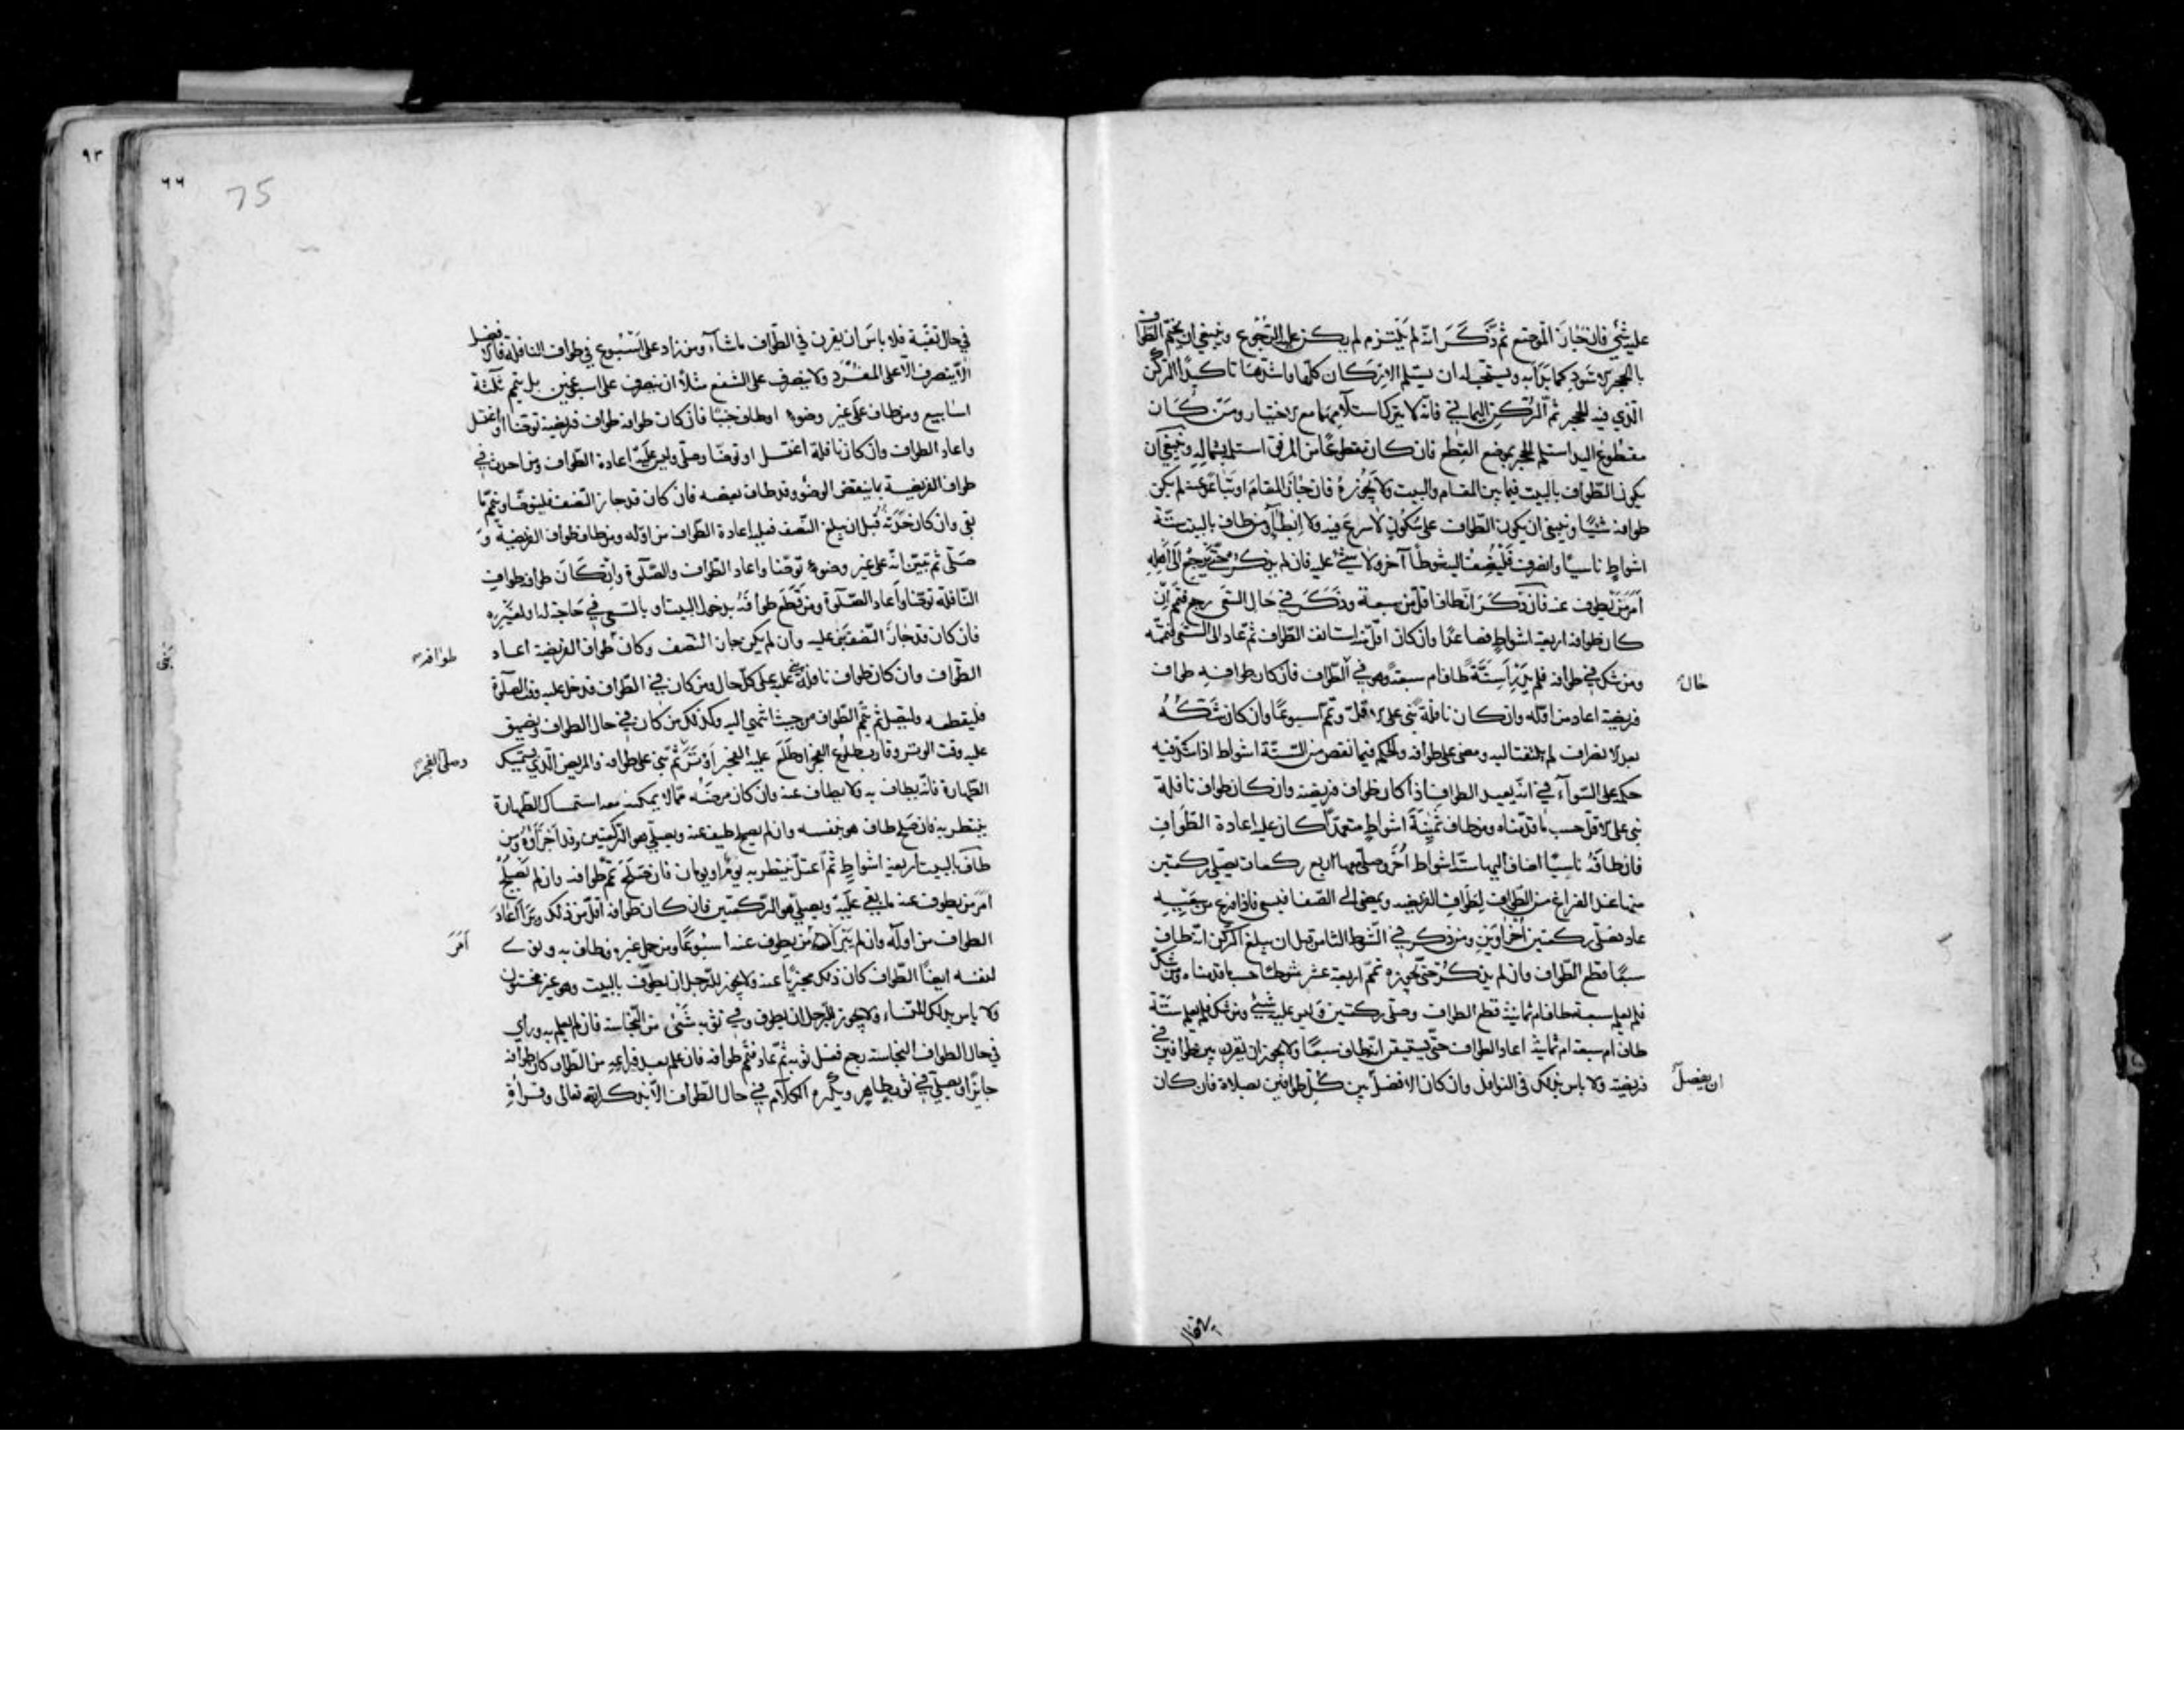 عليه شيء فان جاز الموضع ثم ذكر انه لم يلتزم لم يكن عليه الرجوع وينبغي ان يختم الطواف
بالحجر الاسود كما بدأ به ويستحب له ان يستلم الاركان كلها واشدها تاكيدًا الركن
الذي فيه الحجر ثم الركن اليماني فانه لا يترك استلامهما مع الاختيار ومن كان
مقطوع اليد استلم الحجر بموضع القطع فان كان مقطوعًا من المرفق استلم بشماله وينبغي ان
يكون الطواف بالبيت فيما بين المقام والبيت ولا يجوزه فان جاز المقام او تباعد عنه لم يكن
طوافه شيئًا وينبغي ان يكون الطواف على سكون لا سرع فيه ولا ابطاء ومن طاف بالبيت ستة
اشواط ناسيًا وانصرف فليضف اليه شوطًا آخر ولا شيء عليه فان لم يذكر حتى يرجع الى اهله
امر من يطوف عنه فان ذكر انه طاف اقل من سبعة وذكر في حال السعي رجع فتمم ان
كان طوافه اربعة اشواط فصاعدًا وان كان اقل منه استانف الطواف ثم عاد الى السعي فتممه
ومن شك في طوافه فلم يدر أستة طاف ام سبعة وهو في الطواف فان كان طوافه طواف
حال
فريضة اعاد من اوله وان كان نافلة بنى على الاقل وتمم اسبوعًا وان كان شكه
بعد الانصراف لم يلتفت اليه ومضى على طوافه والحكم فيما نقص من الستة اشواط اذا شك فيه
حكمه على السواء في انه يعيد الطواف اذا كان طواف فريضة وان كان طواف نافلة
بنى على الاقل حسب ما قدمناه ومن طاف ثمنية اشواط متعمدًا كان عليه اعادة الطواف
فان طافه ناسيًا اضاف اليها ستة اشواط أخر وصلى معها اربع ركعات يصلي ركعتين
منها عند الفراغ من الطواف لطواف الفريضه ويمضي الى الصفا فيسعى فاذا فرغ من سعيه
عاد فصلى ركعتين أخراوين ومن ذكر في الشوط الثامن قبل ان يبلغ الركن انه طاف
سبعًا قطع الطواف وان لم يذكر حتى يجوزه تمم اربعة عشر شوطًا حسبما قدمناه ومن شك
فلم يعلم سبعة طاف ام ثمانية قطع الطواف وصلى ركعتين وليس عليه شيء ومن شك فلم يعلم ستة
طاف ام سبعة ام ثمانية اعاد الطواف حتى يستيقن انه طاف سبعًا ولا يجوز ان يقرن بين طوافين في
فريضة ولا باس بذلك في النوافل وان كان الافضل بين كل طوافين بصلاة فان كان
ان يفصل
٩٣
٦٦
75
في حال تقية فلا باس ان يقرن في الطواف ما شاء ومن زاد على اسبوع في طواف النافلة فالافضل
الا ينصرف الا على المفرد ولا ينصرف على الشفع مثلا ان ينصرف على اسبوعين بل يتم ثلثة
اسابيع ومن طاف على غير وضوء او طاف جنبًا فان كان طوافه طواف فريضة توضا او اغتسل
واعاد الطواف وان كان نافلة اغتسل او توضا وصلى وليس عليه اعادة الطواف ومن احدث في
طواف الفريضة بما ينقض الوضوء وقد طاف بعضه فان كان قد جاز النصف فليتوضا ويتمم ما
بقي وان كان حدثه قبل ان يبلغ النصف فعليه اعادة الطواف من اوله ومن طاف طواف الفريضة و
صلى ثم تبين انه على غير وضوء توضا واعاد الطواف والصلوة وان كان طوافه طواف
النافلة توضا واعاد الصلوة ومن قطع طوافه بدخول البيت او بالسعي في حاجة له او لغيره
فان كان قد جاز النصف بنى عليه وان لم يكن جاز النصف وكان طواف الفريضة اعاد
طوافه
الطواف وان كان طواف نافلة بنى عليه على كل حال ومن كان في الطواف فدخل عليه وقت الصلوة
فليقطعه وليصل ثم يتمم الطواف من حيث انتهى اليه وكذلك من كان في حال الطواف ويضيق
عليه وقت الوتر وقارب طلوع الفجر او طلع عليه الفجر اوتر ثم بنى على طوافه والمريض الذي يستمسك
وصلى الفجر
الطهارة فانه يطاف به ولا يطاف عنه وان كان مرضه مما لا يمكنه معه استمساك الطهارة
ينتظر به فان صلح طاف هو بنفسه وان لم يصلح طيف عنه ويصلي هو الركعتين وقد اجزأه ومن
طاف بالبيت اربعة اشواط ثم اعتل ينتظر به يومًا او يومان فان صلح تمم طوافه وان لم يصلح
امر من يطوف عنه ما بقي عليه ويصلي هو الركعتين فان كان طوافه اقل من ذلك وبرأ اعاد
الطواف من اوله وان لم يبرأ من يطوف عنه اسبوعًا ومن حمل غيره فطاف به ونوى
امر
لنفسه ايضًا الطواف كان ذلك مجزيًا عنه ولا يجوز للرجل ان يطوف بالبيت وهو غير مختون
ولا باس بذلك للنساء ولا يجوز للرجل ان يطوف وفي ثوبه شيء من النجاسة فان لم يعلم به وراى
في حال الطواف النجاسة رجع فغسل ثوبه ثم عاد فتمم طوافه فان علم بعد فراغه من الطواف كان طوافه
جايزًا ويصلي في ثوب طاهر ويكره الكلام في حال الطواف الا بذكر الله تعالى وقراءة